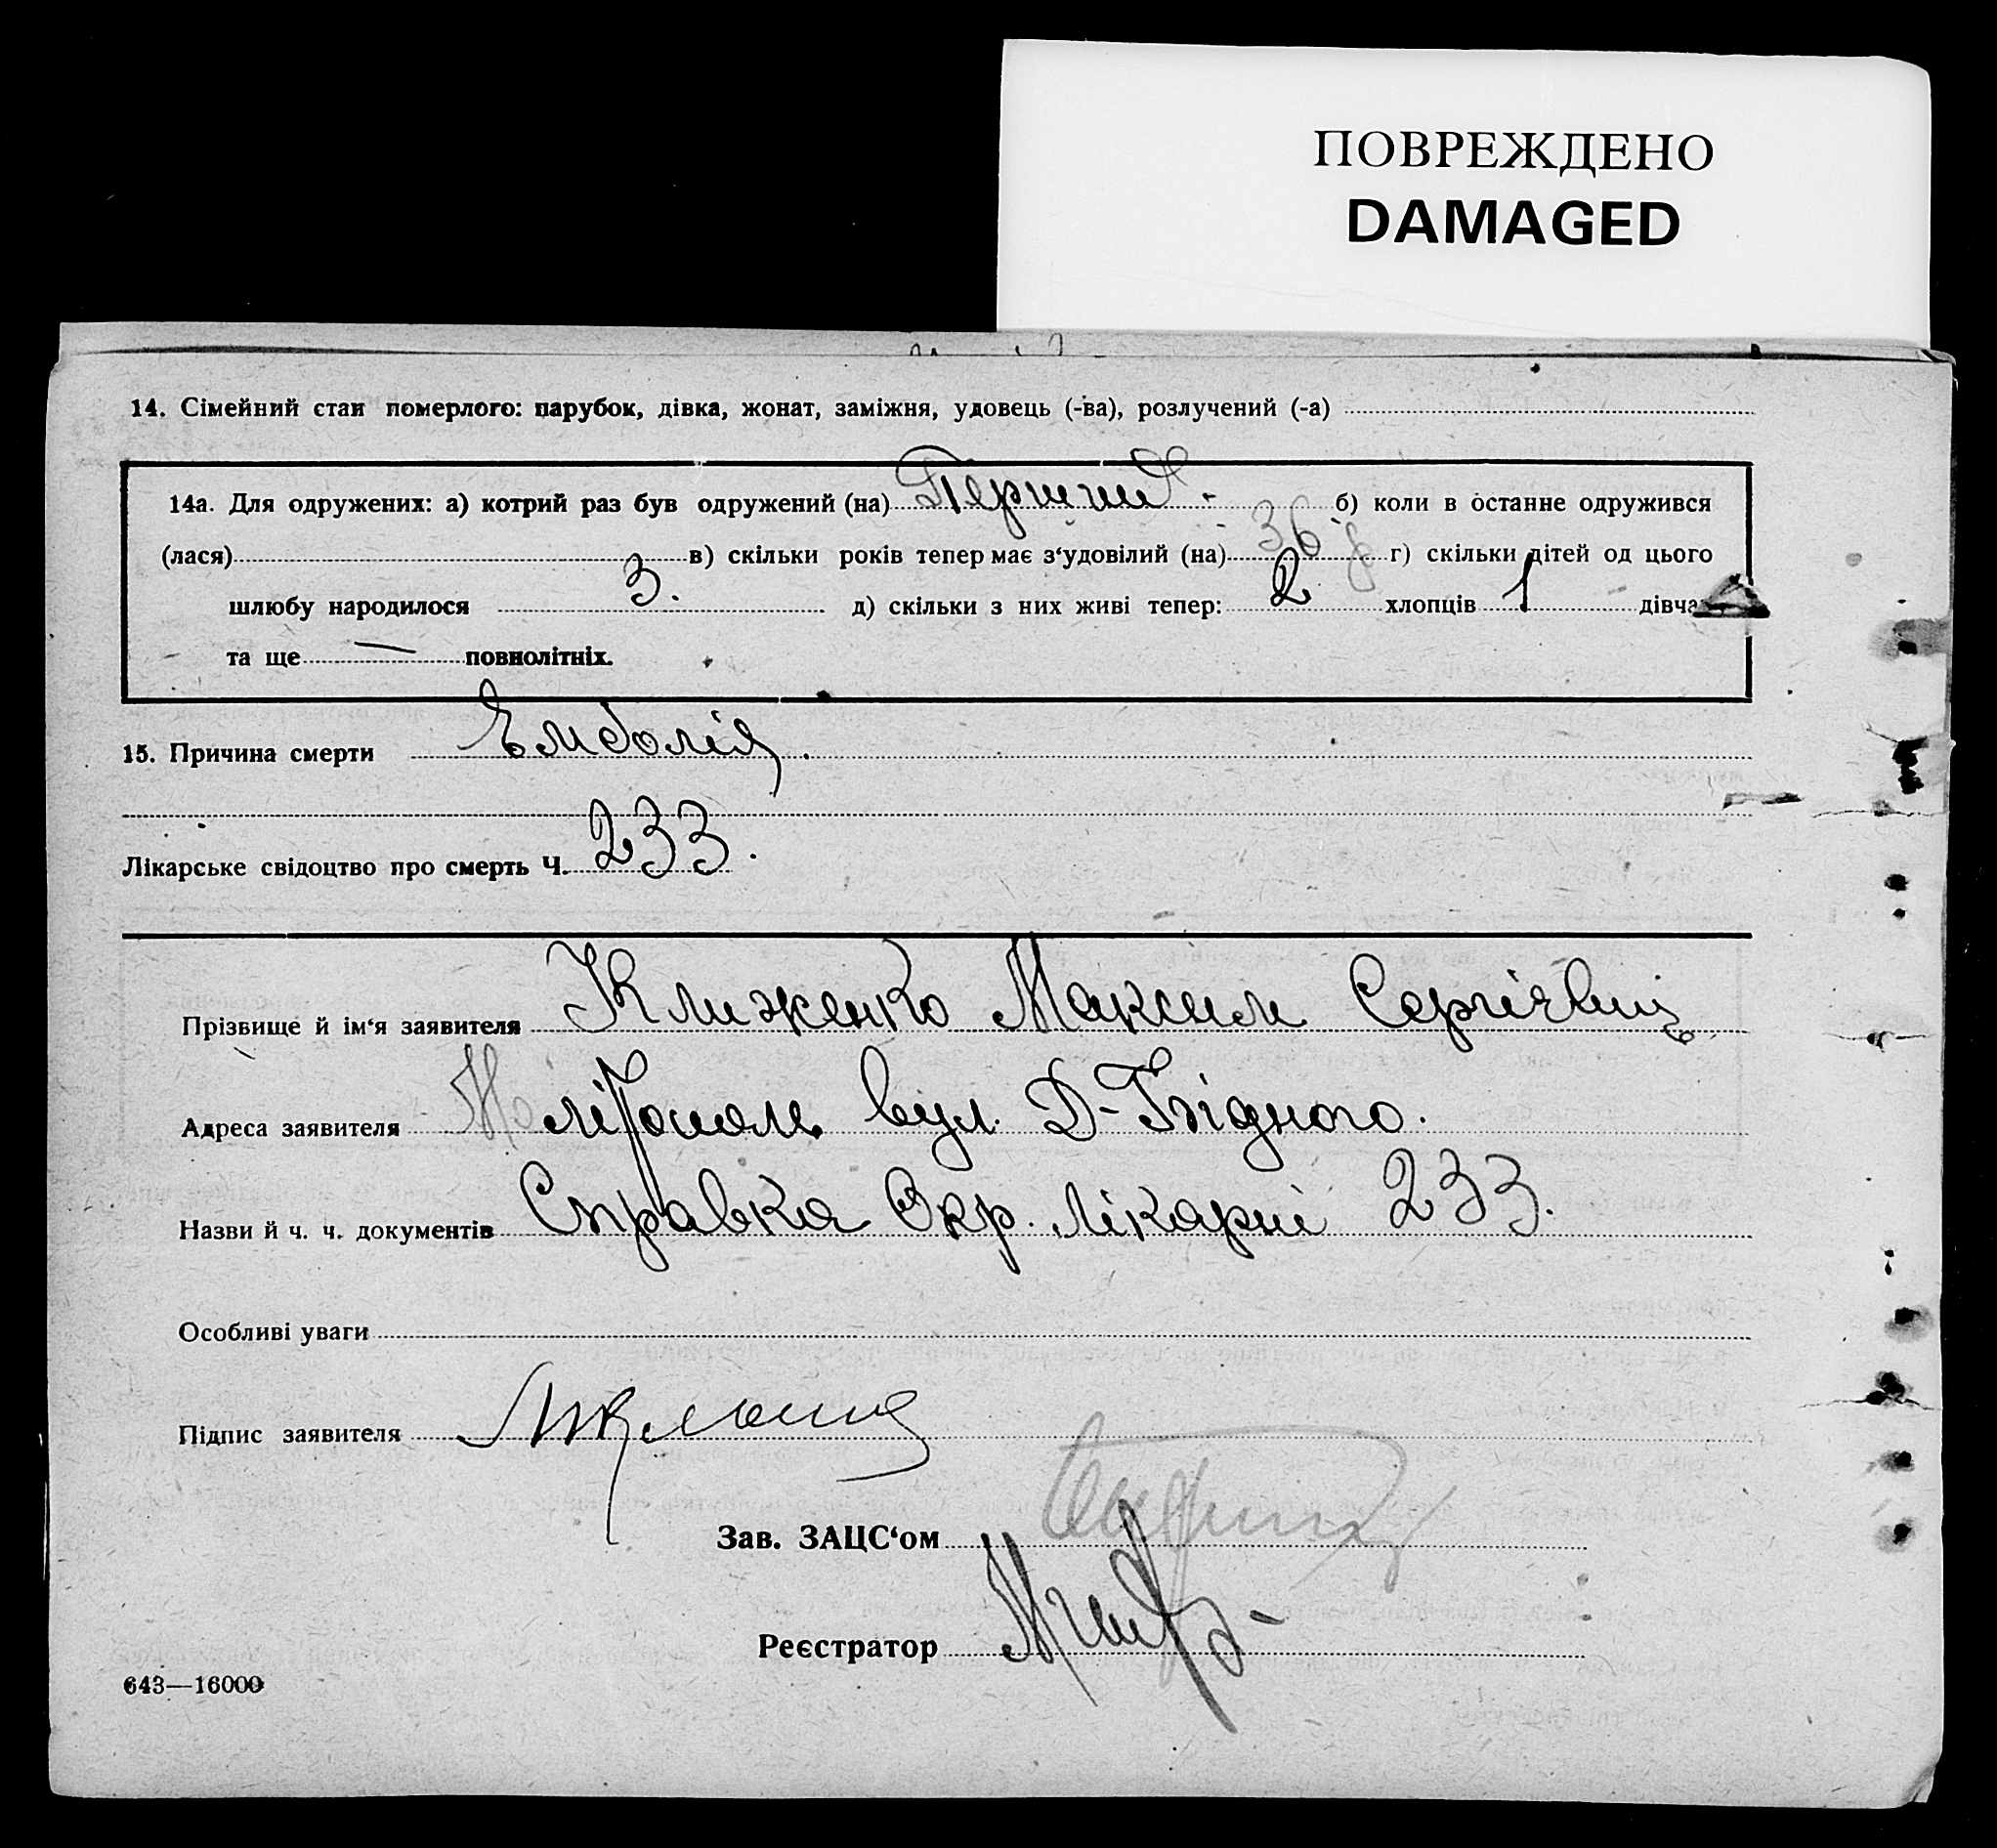 ПОВРЕЖДЕНО
DAMAGED
14. Сімейний стан померлого: парубок, дівка, жонат, заміжня, удовець (-ва), розлучений (-а)
14а. Для одружених: а) котрий раз був одружений (на) Перший - б) коли в останне одружився
(лася) в) скільки років тепер має з‘удовілий (на) 36 р г) скільки дітей од цього
шлюбу народилося 3. д) скільки з них живі тепер: 2 хлопців 1 дівча
та ще — повнолітніх.
15. Причина смерти Ємболія.
Лікарське свідоцтво про смерть Ч. 233.
Прізвище й ім‘я заявителя Клиженко Максим Сергієвиц
Адреса заявителя Мелітополь вул. Д-Бідного.
Назви й ч. ч. документів Справка Окр. Лікарні 233.
Особливі уваги
Підпис заявителя
Зав. ЗАЦС‘ом
Реєстратор
643—16000